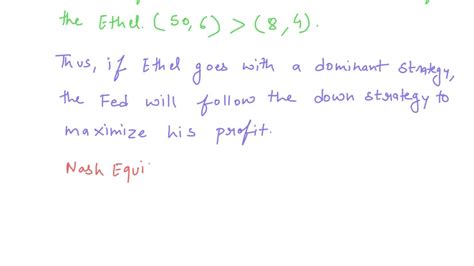 the Ethel. (50,6) > (8,4).
Thus, if Ethel goes with a dominant strategy,
the Fed will follow the down strategy to
maximize his profit.
Nash Equi